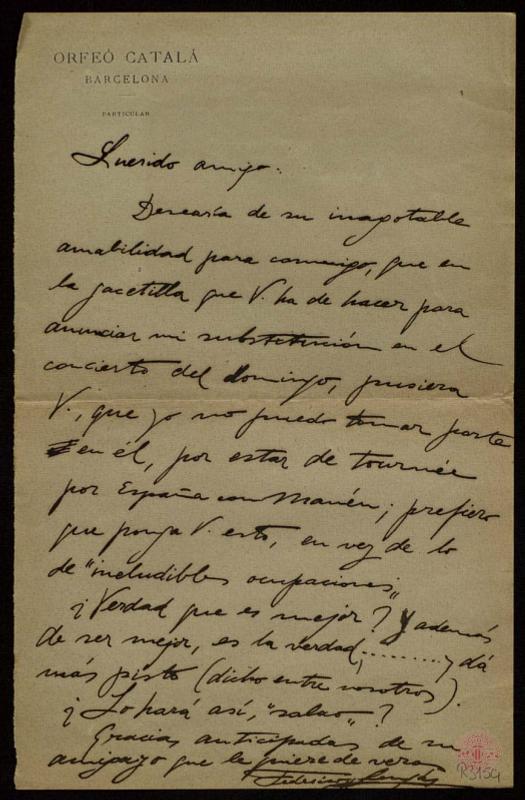 ORFEÓ CATALÁ
BARCELONA
PARTICULAR
Querido amigo:
Desearía de su inagotable
amabilidad para conmigo, que en
la gacetilla que V. ha de hacer para
anunciar mi substitución en el
concierto del domingo, pusiera
V., que yo no puedo tomar parte
en él, por estar de tournée
por España con Manén; prefiero
que ponga V. esto, en vez de lo
de "ineludibles ocupaciones"
¿Verdad que es mejor? Y además
de ser mejor, es la verdad, ......... y dá
más pisto (dicho entre nosotros).
¿Lo hará así, "salao"?
Gracias anticipadas de su
amigazo que le quiere de veras
Federico Longás
R3154